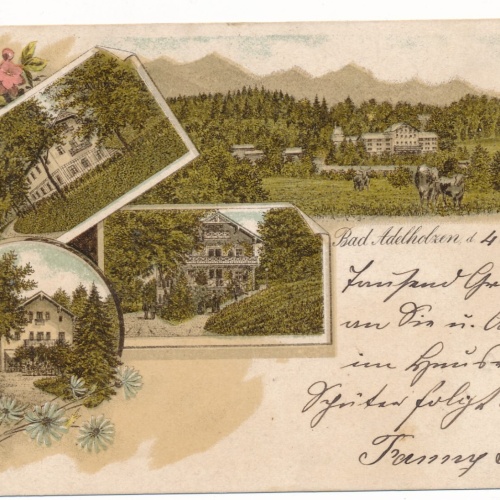 Bad Adelholzen d 4
Tausend Gr
an Sie u.
im Hause
Später folgt
Fanny